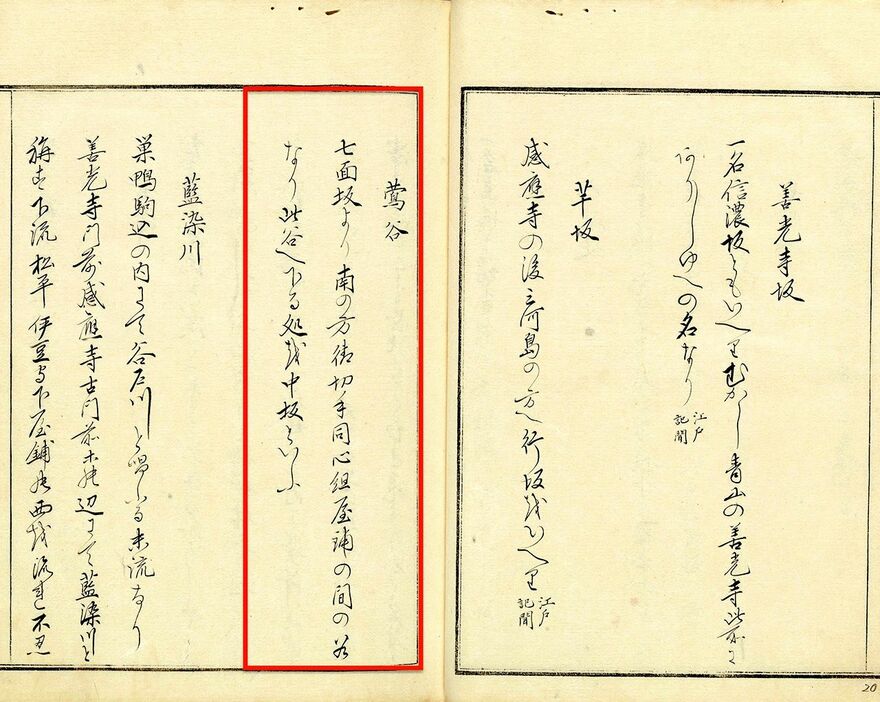 善光寺坂
一名信濃坂ともいへりむかし青山の善光寺此所に
ありしゆへの名なり 江戸記聞
芋坂
感應寺の後三河島の方へ行坂をいへり 江戸記聞
鶯谷
七面坂より南の方御切手同心組屋鋪の間の谷
なり此谷へ下る処を中坂といふ
藍染川
巣鴨駒込の内にて谷戸川と唱ふる末流なり
善光寺門前感應寺古門前等の辺にて藍染川と
称す下流松平伊豆守下屋鋪の西を流れ不忍
20